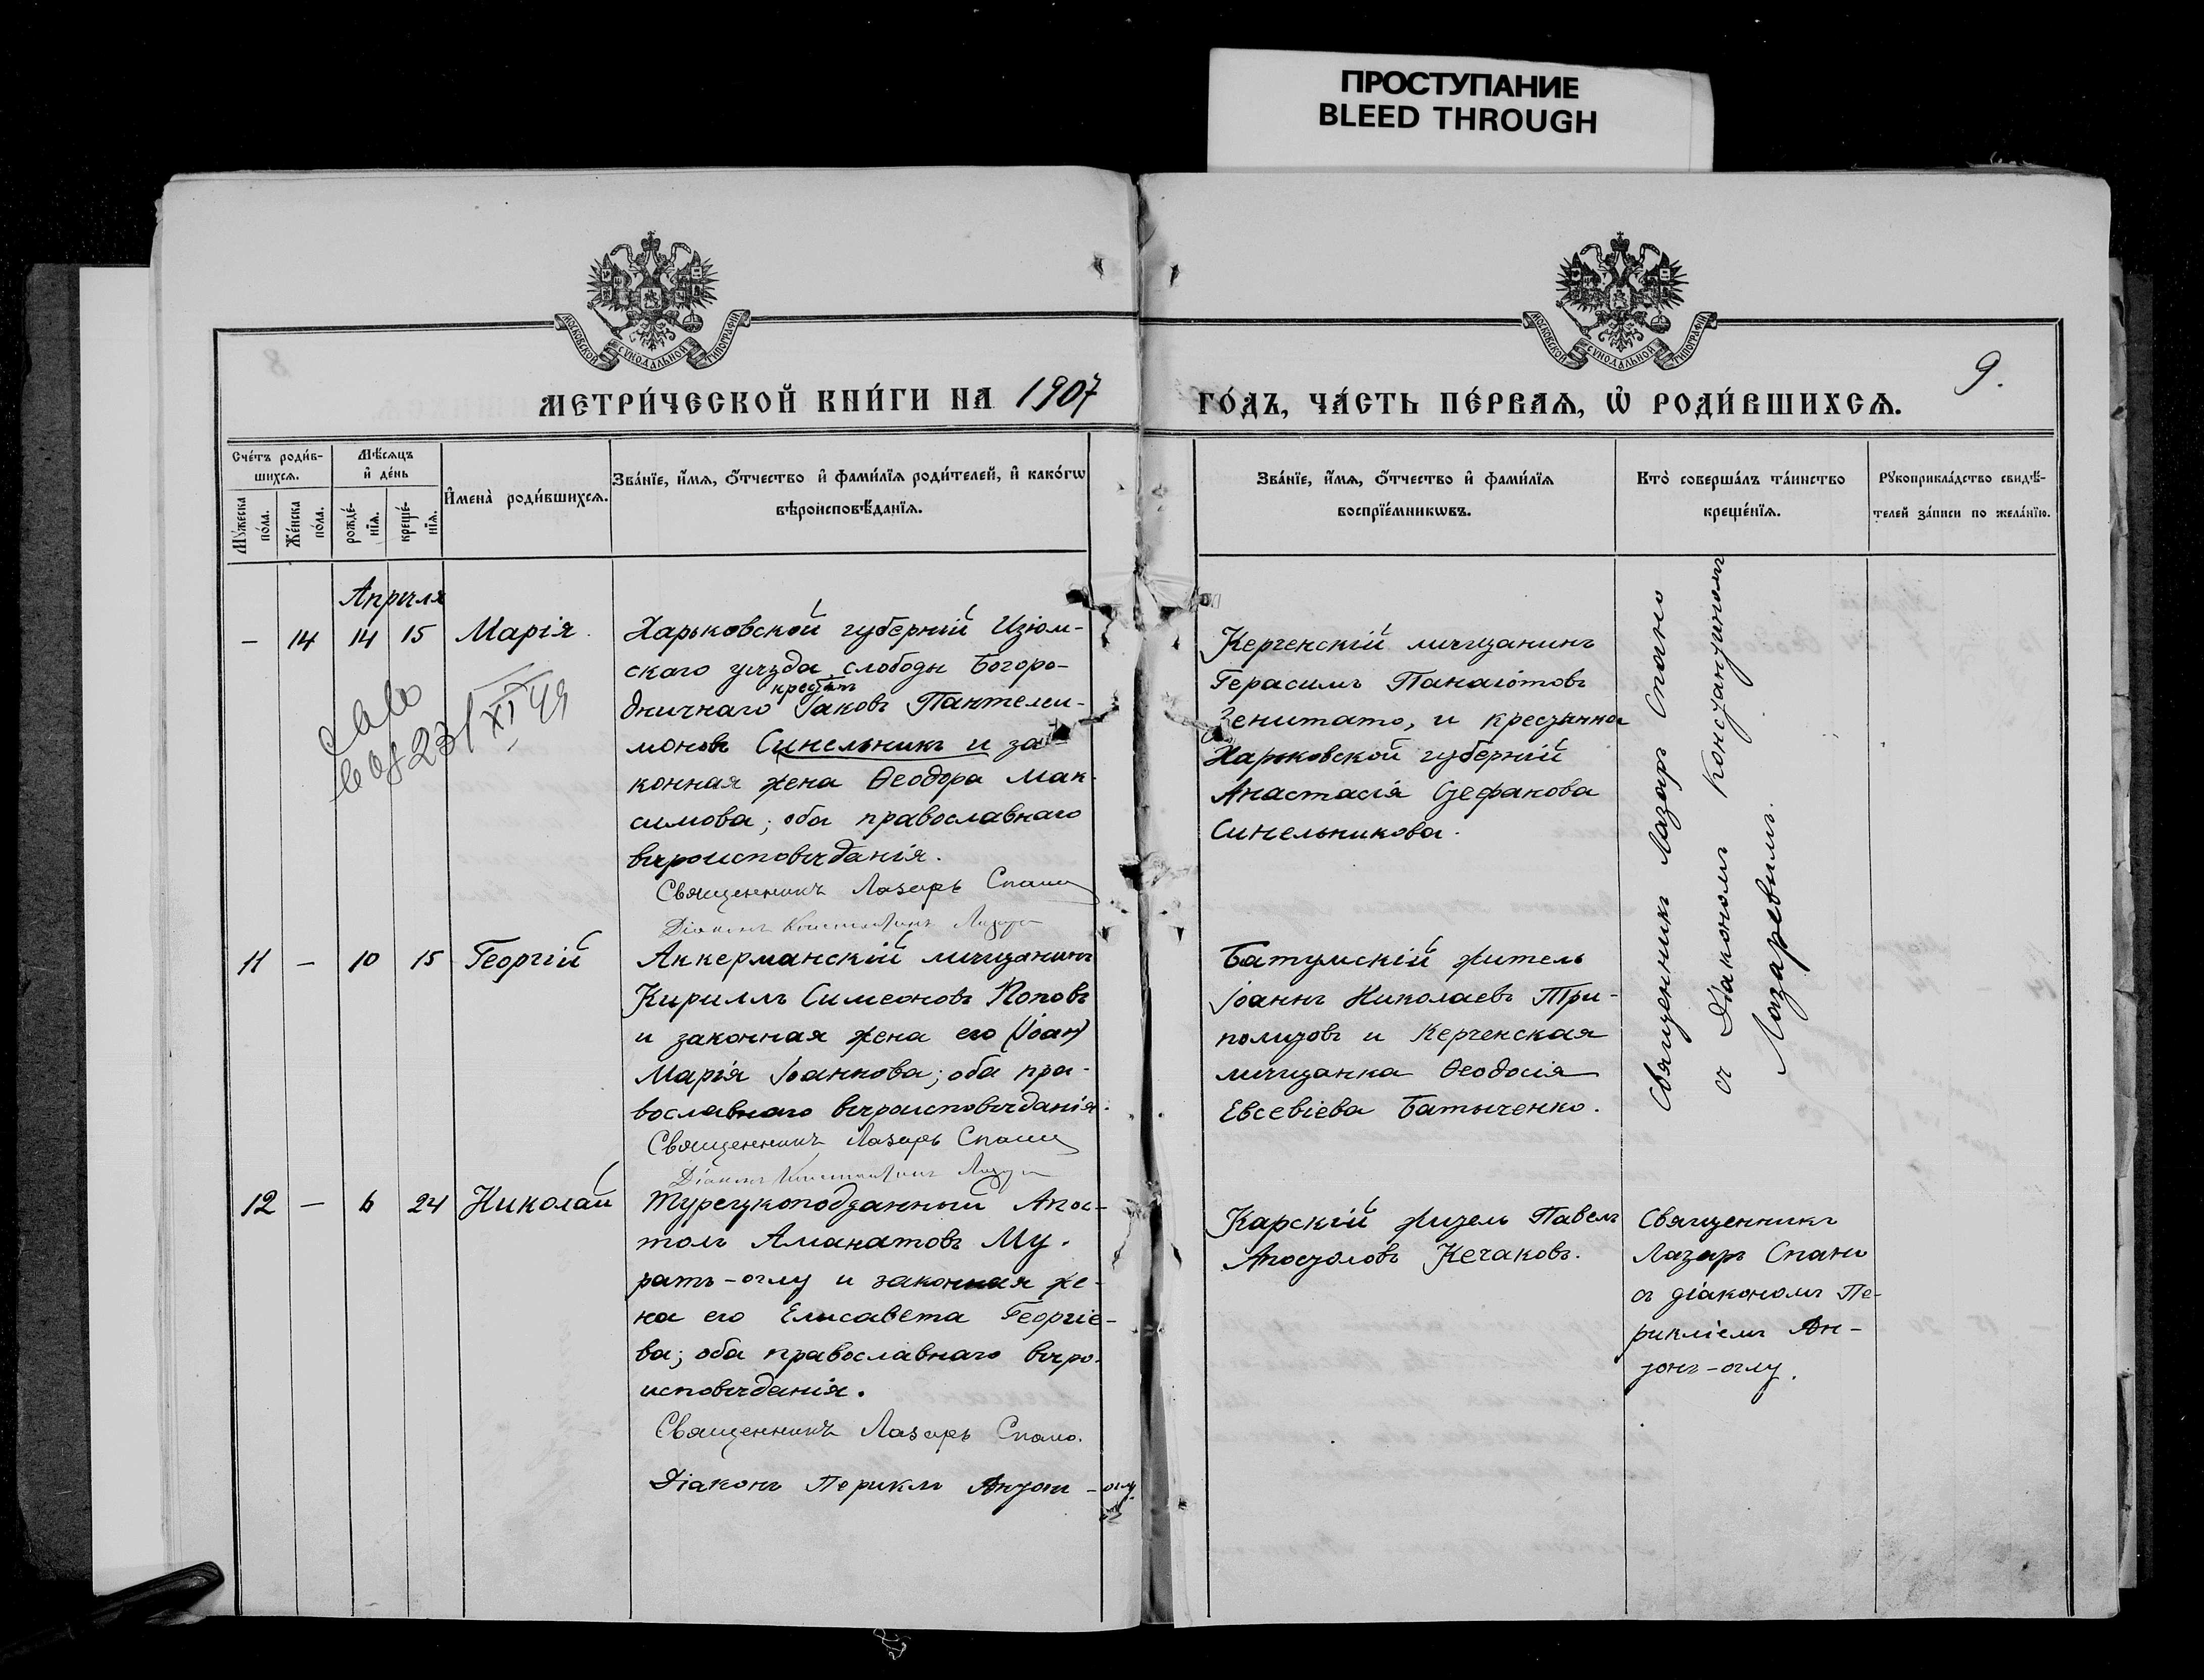 ПРОСТУПАНИЕ
BLEED THROUGH
МОСКОВСКОЙ СѴНОДАЛЬНОЙ ТИПОГРАФІИ
МОСКОВСКОЙ СѴНОДАЛЬНОЙ ТИПОГРАФІИ
8
9.
МЕТРИ́ЧЕСКОЙ КНИ́ГИ НА 1907
ГО́ДЪ, ЧА́СТЬ ПЕ́РВАѦ, Ѡ҆ РОДИ́ВШИХСѦ.
Сче́тъ роди́в-
шихсѧ.
Мꙋ́жеска
по́ла.
Же́нска
по́ла.
Мѣ́сѧцъ
и҆ де́нь
рожде́-
нїѧ.
креще́-
нїѧ.
И҆мена̀ роди́вшихсѧ.
Зва́нїе, и҆́мѧ, ѻ҆́тчество и҆ фами́лїѧ роди́телей, и҆ како́гѡ
вѣроисповѣ́данїѧ.
Зва́нїе, и҆́мѧ, ѻ҆́тчество и҆ фами́лїѧ
воспрїе́мникѡвъ.
Кто̀ соверша́лъ та́инство
креще́нїѧ.
Рꙋкоприкла́дство свидѣ́-
телей за́писи по жела́нїю.
Апрѣля
— 14 14 15 Марія.
Харьковской губерніи Изюм-
скаго уѣзда слободы Богоро-
крестьян
дичнаго Іаковъ Пантелеи-
моновъ Синельникъ и за-
конная жена Ѳеодора Мак-
симова; оба православнаго
вѣроисповѣданія.
Священникъ Лазарь Спано
Діаконъ Константинъ Лазаре
Керченскій мѣщанинъ
Герасимъ Панаіотовъ
Зенитато, и крестьянка
Харьковской губерніи
Анастасія Стефанова
Синельникова.
Священникъ Лазарь Спано
съ Діакономъ Константиномъ
Лазаревымъ.
11 — 10 15 Георгій
Аккерманскій мѣщанинъ
Кириллъ Симеоновъ Поповъ
и законная жена его (Іоан)
Марія Іоаннова; оба пра-
вославнаго вѣроисповѣданія.
Священникъ Лазарь Спано
Діаконъ Константинъ Лазаре
Батумскій житель
Іоаннъ Николаевъ Три-
политовъ и Керченская
мѣщанка Ѳеодосія
Евсевіева Батыченко.
12 — 6 24 Николай
Турецкоподданный Апос-
толъ Аманатовъ Му-
ратъ-оглу и законная же-
на его Елисавета Георгіе-
ва; оба православнаго вѣро-
исповѣданія.
Священникъ Лазарь Спано.
Діаконъ Периклъ Антонъ-оглу
Карскій житель Павелъ
Апостоловъ Кечаковъ.
Священникъ
Лазарь Спано
съ діакономъ Пе-
рикліемъ Ан-
тонъ-оглу.